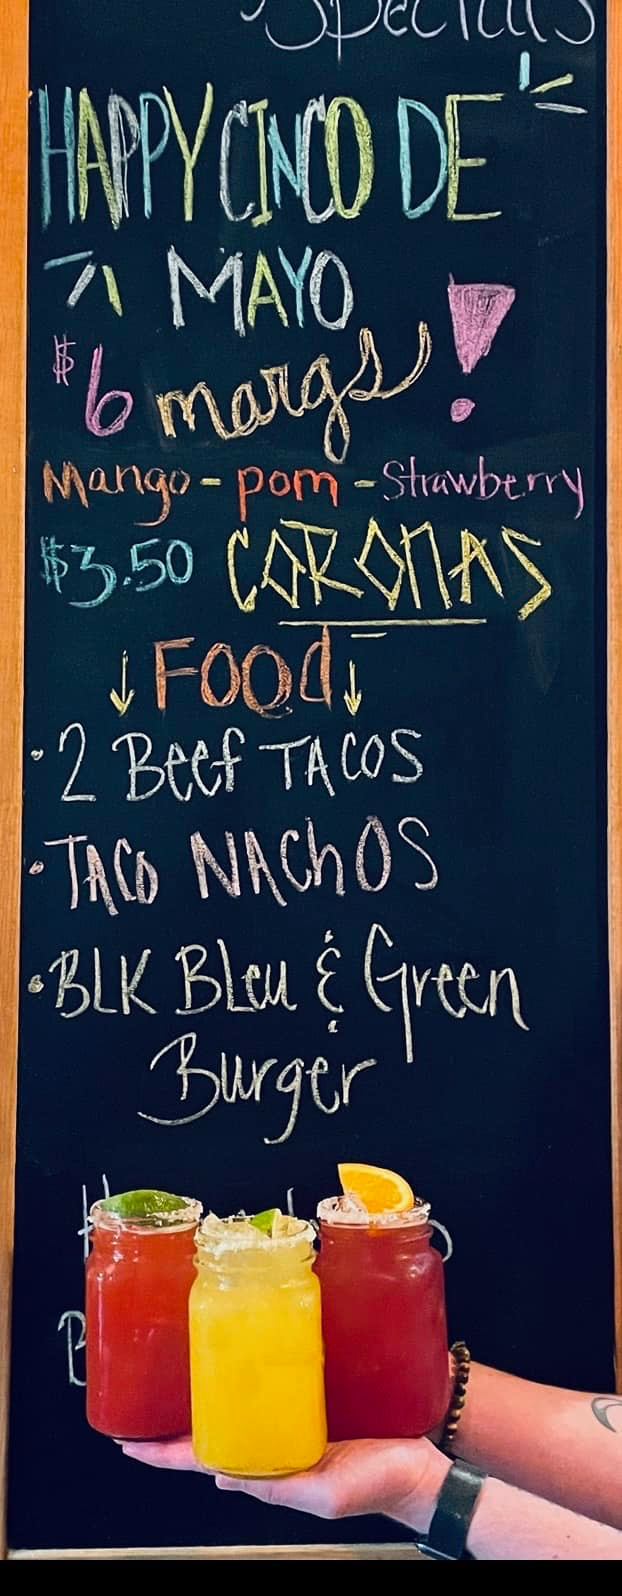 Specials
HAPPY CINCO DE
MAYO
$6 margs!
Mango - pom - Strawberry
$3.50 CORONAS
Food
• 2 Beef TACOS
• TACO NAChOS
• BLK Bleu & Green
Burger